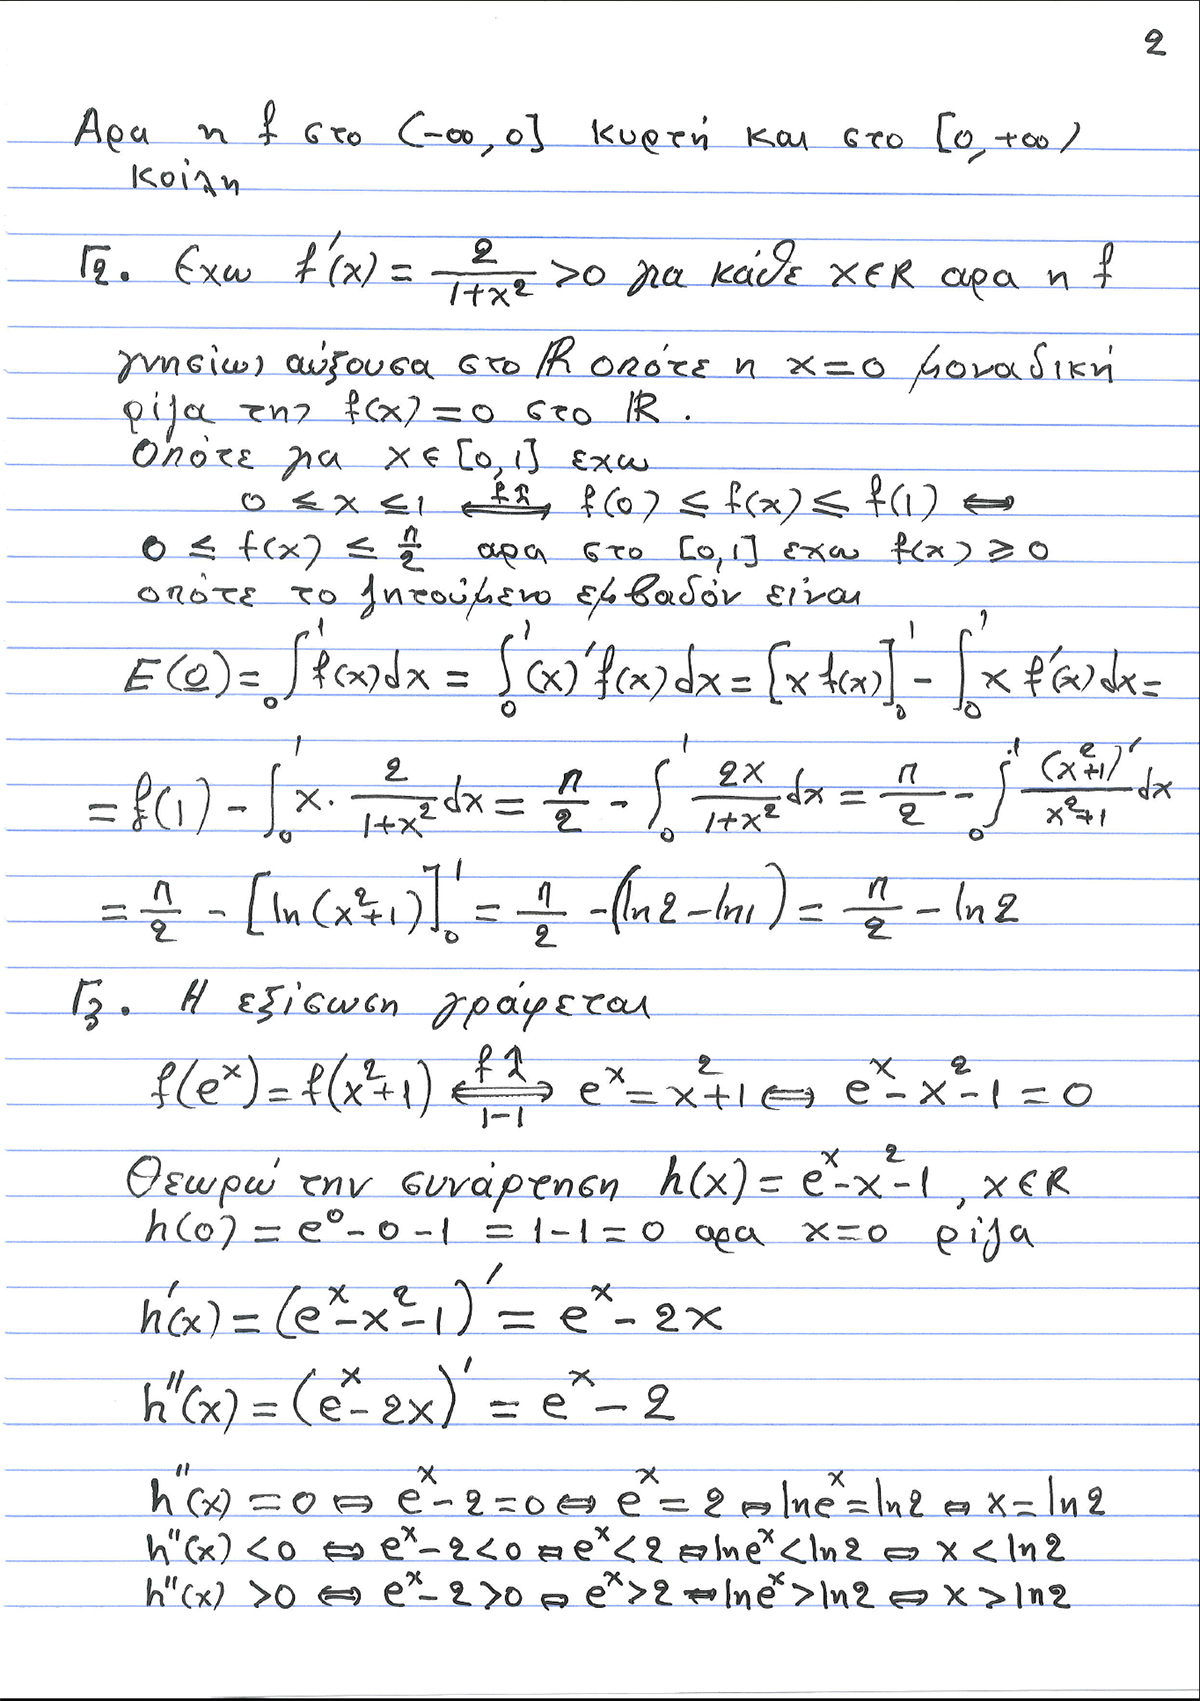 2
Αρα η f στο (-∞, 0] κυρτή και στο [0, +∞)
κοίλη
Γ2. Εχω f'(x) = 2/(1+x²) >0 για κάθε x∈R αρα η f
γνησίως αύξουσα στο ℝ οπότε η x=0 μοναδική
ρίζα της f(x)=0 στο ℝ.
Οπότε για x∈[0,1] εχω
0 ≤ x ≤ 1 ⟺(f↑) f(0) ≤ f(x) ≤ f(1) ⟺
0 ≤ f(x) ≤ π/2 αρα στο [0,1] εχω f(x) ≥ 0
οπότε το ζητούμενο εμβαδόν είναι
E(Ω)= ∫₀¹ f(x)dx = ∫₀¹ (x)' f(x)dx = [x f(x)]₀¹ - ∫₀¹ x f'(x)dx =
= f(1) - ∫₀¹ x· 2/(1+x²) dx = π/2 - ∫₀¹ 2x/(1+x²) dx = π/2 - ∫₀¹ (x²+1)'/(x²+1) dx
= π/2 - [ln(x²+1)]₀¹ = π/2 -(ln2-ln1) = π/2 - ln2
Γ3. Η εξίσωση γράφεται
f(eˣ)=f(x²+1) ⟺(f↑, 1-1) eˣ=x²+1 ⟺ eˣ-x²-1=0
Θεωρώ την συνάρτηση h(x)=eˣ-x²-1, x∈R
h(0)=e⁰-0-1 =1-1=0 αρα x=0 ρίζα
h'(x)=(eˣ-x²-1)' = eˣ-2x
h''(x)=(eˣ-2x)' = eˣ-2
h''(x)=0 ⟺ eˣ-2=0 ⟺ eˣ=2 ⟺ lneˣ=ln2 ⟺ x=ln2
h''(x)<0 ⟺ eˣ-2<0 ⟺ eˣ<2 ⟺ lneˣ<ln2 ⟺ x<ln2
h''(x)>0 ⟺ eˣ-2>0 ⟺ eˣ>2 ⟺ lneˣ>ln2 ⟺ x>ln2